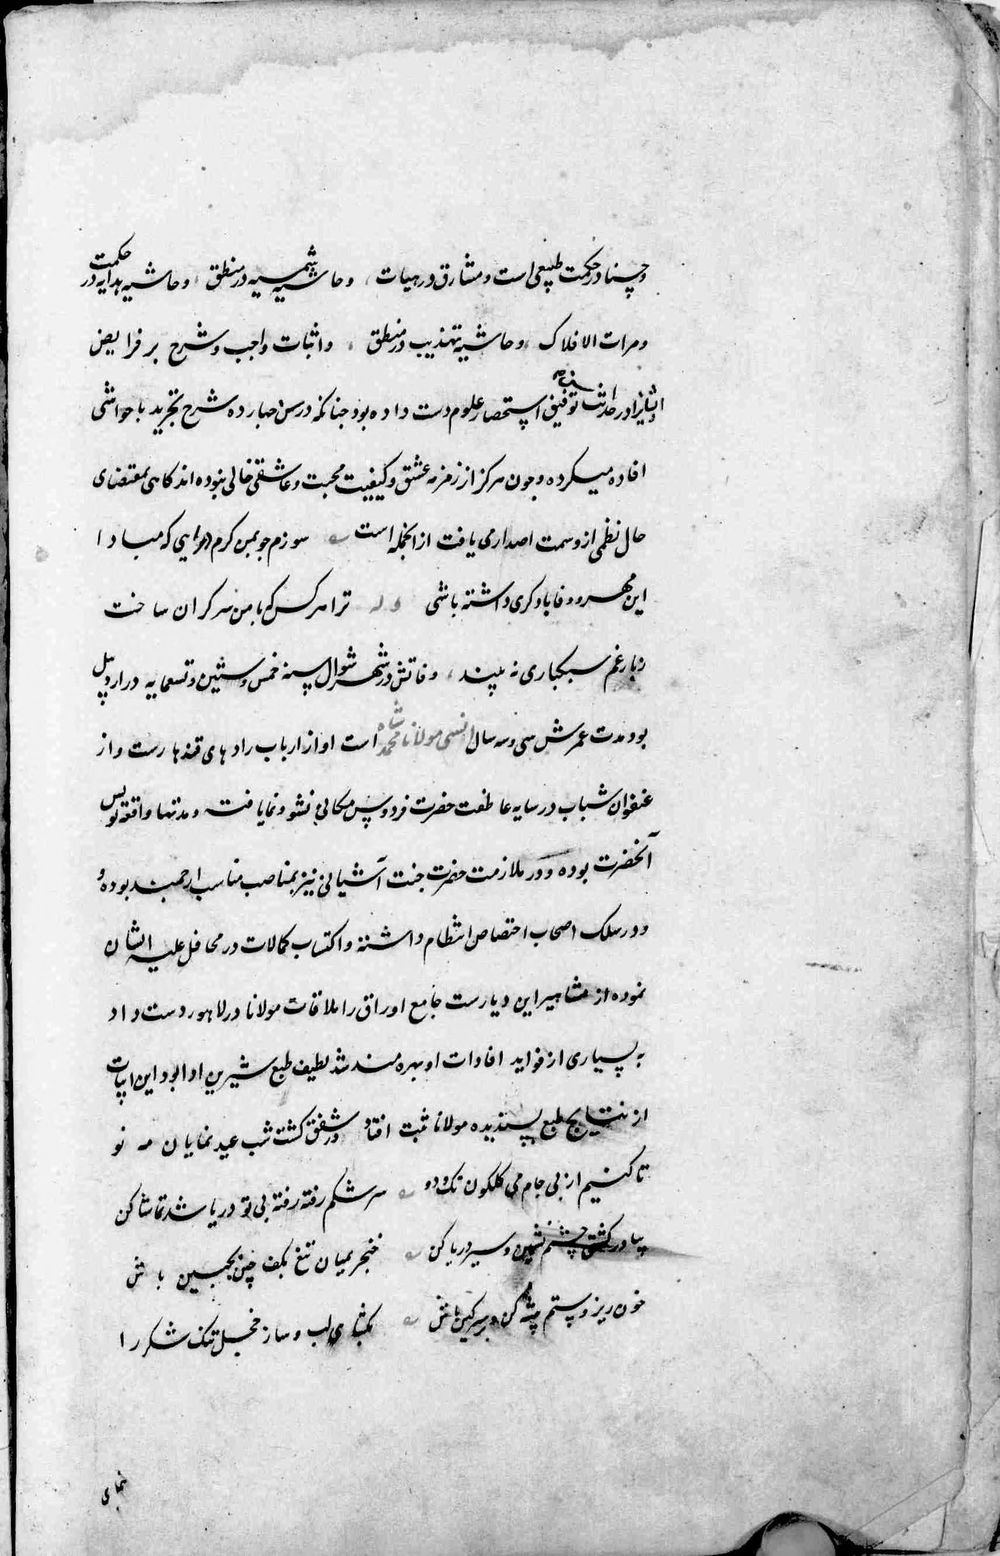 و چنا در حکمت طبیعی است و مشارق در هیات، و حاشیه شمسیه در منطق، و حاشیه هدایه در حکمت
و مرات الافلاک، و حاشیه تهذیب در منطق، و اثبات واجب و شرح بر فرایض
و ایشانرا در حداثت سن توفیق استحضار علوم دست داده بود چنانکه درسن چهارده شرح تجرید با حواشی
افاده میکرده و چون هرکز از زمزمه عشق و کیفیت محبت و عاشقی خالی نبوده اند کاهی بمقتضای
حال نظمی ازو سمت اصداری یافت از انجمله است سوزم چو بمن کرم درایی که مبادا
این مهر و وفا با دکری داشته باشی وله ترا هرکس که با من سرکران ساخت
زبار غم سبکباری نه بیند، وفاتش در شهر شوال سنه خمس و ستین و تسعمایه در اردبیل
بود مدت عمرش سی و سه سال انسی مولانا شاه محمد است او از ارباب رادهای قندهارست و از
عنفوان شباب در سایه عاطفت حضرت فردوس مکانی نشو و نما یافت و مدتها واقعه نویس
آنحضرت بوده و در ملازمت حضرت جنت آشیانی نیز بمناصب مناسب ارجمند بوده و
و در سلک اصحاب اختصاص انتظام داشته و اکتساب کمالات در محافل علیه ایشان
نموده از مشاهیر این دیارست جامع اوراق را ملاقات مولانا در لاهور دست داد
به بسیاری از فواید افادات او بهره مند شد لطیف طبع شیرین ادا بود این ابیات
از نتایج طبع پسندیده مولانا ثبت افتاد در شفق کشت شب عید نمایان مه نو
تا کنیم از پی جام می کلکون تک و دو سرشکم رفته رفته بی تو دریا شد تماشا کن
بیا در کشتی چشم نشین و سیر دریا کن خنجر بمیان تیغ بکف چین بجبین باش
خون ریز و ستم پیشه کن و بر سر کین باش بکشای لب و ساز خجل تنک شکر را
نمای